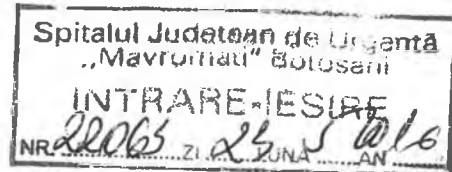 Spitalul Județean de Urgentă
„Mavromati" Botoșani
INTRARE-IEȘIRE
NR. 22065 ZI LUNA 5 AN